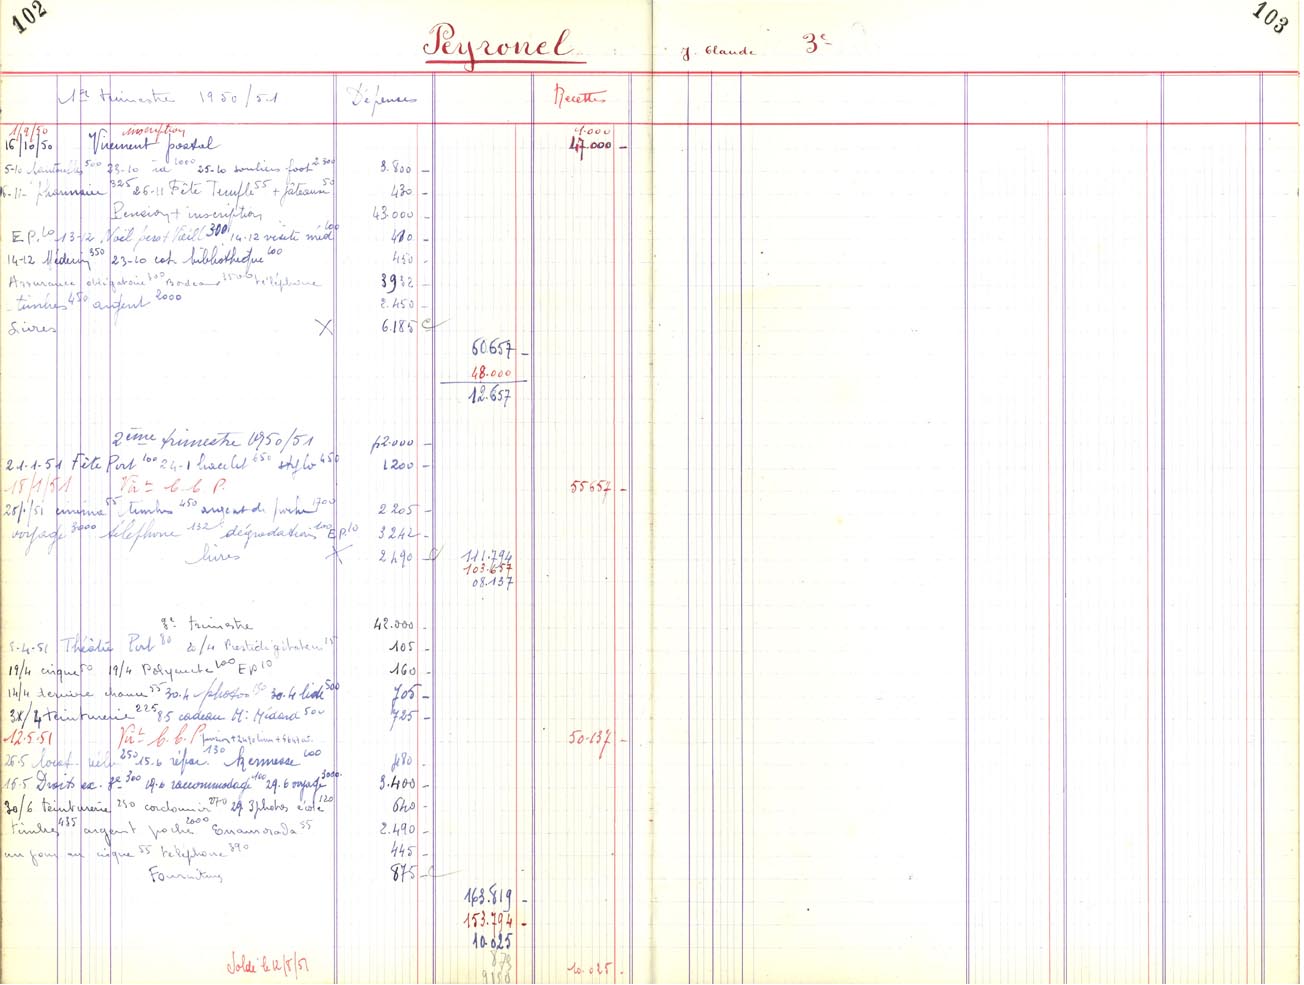 102
103
Peyronel
J. Claude 3e
1er trimestre 1950/51 Dépenses Recettes
1/9/50 inscription 1.000
16/10/50 Virement postal 47.000
5-10 500 23-10 id 1000 25-10 souliers foot 2300 3.800
pharmacie 325 26-11 Fête Temple 55 + gâteaux 50 430
Pension + inscription 43.000
E.P. 10 13-12 Noël 300 14-12 visite méd 100 410
14-12 Médecin 350 23-10 cot. bibliothèque 100 450
Assurance obligatoire 100 Bordeaux téléphone 3932
timbres 450 argent 2000 2.450
Livres X 6.185
60.657
48.000
12.657
2ème trimestre 1950/51 42.000
21-1-51 Fête Port 100 24-1 bracelet 650 stylo 450 1200
18/1/51 Virt C.C.P. 55657
25/1/51 cinéma 55 timbres 450 argent de poche 1700 2205
voyage 3000 téléphone 132 dégradations 100 E.P. 10 3242
livres X 2490 111.794
103.657
08.137
3e trimestre 42.000
5-4-51 Théâtre Port 80 2/4 Prestidigitateur 105
19/4 cirque 50 19/4 Polyeucte 100 EP 10 160
14/4 dernière chance 55 30.4 photos 150 30.4 500 705
teinturerie 225 8 5 cadeau Mr Médard 500 725
12.5.51 Virt C.C.P. 50.137
26-5 locat. vélo 250 15.6 répar. 130 Kermesse 100 480
16-5 Droits ex. 300 19.6 raccommodage 100 29.6 voyage 3000 3.400
30/6 teinturerie 250 cordonnier 270 29 3 photos école 120 640
timbres 435 argent poche 2000 Enamorada 55 2.490
un jour au cirque 55 téléphone 390 445
Fournitures 875
163.819
153.794
10.025
Soldé le 12/8/51 10.025